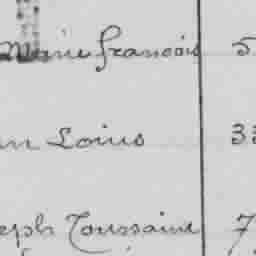 Marie françois 5
n Loius 33
eph Toussaint 7